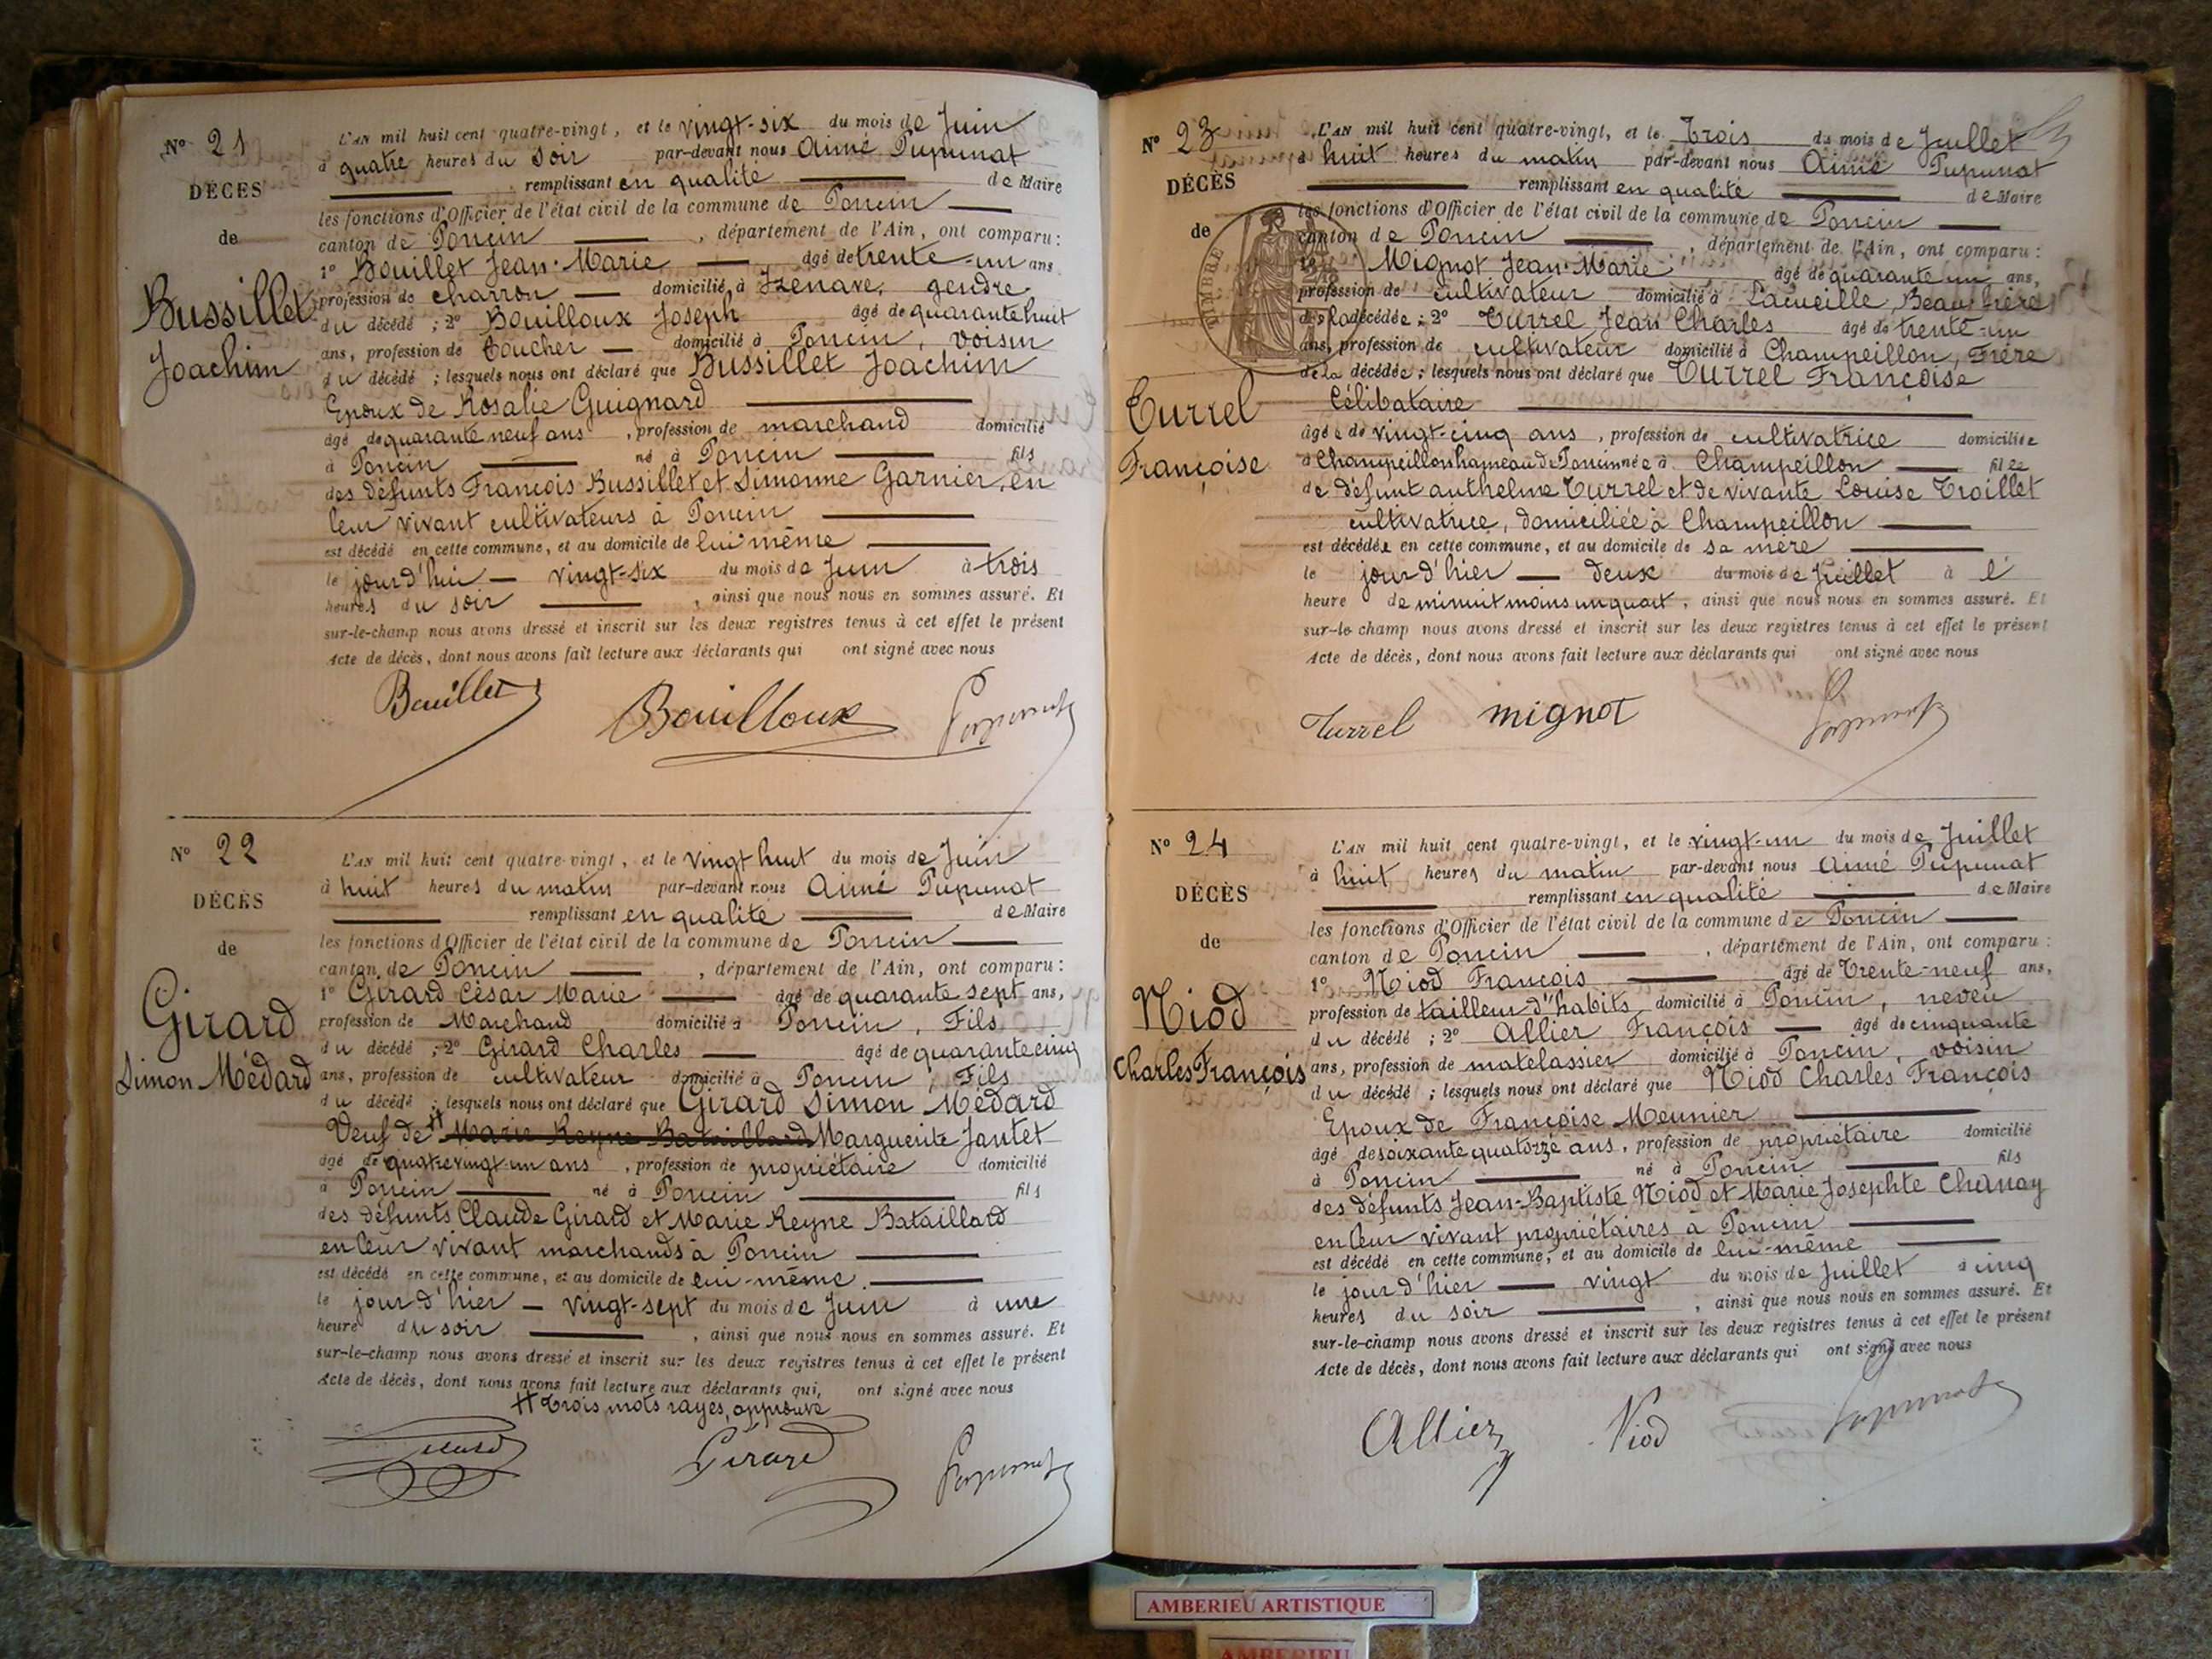 N° 21
DÉCÈS
de
Bussillet
Joachim
L'AN mil huit cent quatre-vingt, et le vingt-six du mois de Juin
à quatre heures du soir par-devant nous Aimé Pupunat
remplissant en qualité de Maire
les fonctions d'Officier de l'état civil de la commune de Poncin
canton de Poncin, département de l'Ain, ont comparu :
1° Bouillet Jean-Marie âgé de trente-un ans
profession de charron domicilié à Izenave, gendre
du décédé ; 2° Bouilloux Joseph âgé de quarante huit
ans, profession de Boucher domicilié à Poncin, voisin
du décédé ; lesquels nous ont déclaré que Bussillet Joachim
Epoux de Rosalie Guignard
âgé de quarante neuf ans, profession de marchand domicilié
à Poncin né à Poncin fils
des défunts François Bussillet et Simonne Garnier, en
leur vivant cultivateurs à Poncin
est décédé en cette commune, et au domicile de lui même
le jourd'hui vingt-six du mois de Juin à trois
heures du soir, ainsi que nous nous en sommes assuré. Et
sur-le-champ nous avons dressé et inscrit sur les deux registres tenus à cet effet le présent
Acte de décès, dont nous avons fait lecture aux déclarants qui ont signé avec nous
Bouillet Bouilloux Pupunat
N° 22
DÉCÈS
de
Girard
Simon Médard
L'AN mil huit cent quatre-vingt, et le vingt huit du mois de Juin
à huit heures du matin par-devant nous Aimé Pupunat
remplissant en qualité de Maire
les fonctions d'Officier de l'état civil de la commune de Poncin
canton de Poncin, département de l'Ain, ont comparu :
1° Girard César Marie âgé de quarante sept ans,
profession de Marchand domicilié à Poncin, Fils
du décédé ; 2° Girard Charles âgé de quarante cinq
ans, profession de cultivateur domicilié à Poncin, Fils
du décédé ; lesquels nous ont déclaré que Girard Simon Médard
Veuf de # Marie Reyne Bataillard Marguerite Jantet
âgé de quatre vingt-un ans, profession de propriétaire domicilié
à Poncin né à Poncin fils
des défunts Claude Girard et Marie Reyne Bataillard
en leur vivant marchands à Poncin
est décédé en cette commune, et au domicile de lui-même
le jour d'hier vingt-sept du mois de Juin à une
heure du soir, ainsi que nous nous en sommes assuré. Et
sur-le-champ nous avons dressé et inscrit sur les deux registres tenus à cet effet le présent
Acte de décès, dont nous avons fait lecture aux déclarants qui, ont signé avec nous
# Trois mots rayés, approuvé
Girard Girard Pupunat
N° 23
DÉCÈS
de
TIMBRE
Turrel
Françoise
L'AN mil huit cent quatre-vingt, et le Trois du mois de Juillet
à huit heures du matin par-devant nous Aimé Pupunat
remplissant en qualité de Maire
les fonctions d'Officier de l'état civil de la commune de Poncin
canton de Poncin, département de l'Ain, ont comparu :
1° Mignot Jean-Marie âgé de quarante un ans,
profession de cultivateur domicilié à Lacueille, Beau frère
de la décédée ; 2° Turrel Jean Charles âgé de trente-un
ans, profession de cultivateur domicilié à Champeillon, Frère
de la décédée ; lesquels nous ont déclaré que Turrel Françoise
Célibataire
âgée de vingt-cinq ans, profession de cultivatrice domiciliée
à Champeillon hameau de Poncin née à Champeillon fille
de défunt anthelme Turrel et de vivante Louise Troillet
cultivatrice, domiciliée à Champeillon
est décédée en cette commune, et au domicile de sa mère
le jour d'hier deux du mois de Juillet à l'
heure de minuit moins un quart, ainsi que nous nous en sommes assuré. Et
sur-le-champ nous avons dressé et inscrit sur les deux registres tenus à cet effet le présent
Acte de décès, dont nous avons fait lecture aux déclarants qui ont signé avec nous
Turrel mignot Pupunat
N° 24
DÉCÈS
de
Niod
Charles François
L'AN mil huit cent quatre-vingt, et le vingt-un du mois de Juillet
à huit heures du matin par-devant nous Aimé Pupunat
remplissant en qualité de Maire
les fonctions d'Officier de l'état civil de la commune de Poncin
canton de Poncin, département de l'Ain, ont comparu :
1° Niod François âgé de Trente-neuf ans,
profession de tailleur d'habits domicilié à Poncin, neveu
du décédé ; 2° Allier François âgé de cinquante
ans, profession de matelassier domicilié à Poncin, voisin
du décédé ; lesquels nous ont déclaré que Niod Charles François
Epoux de Françoise Meunier
âgé de soixante quatorze ans, profession de propriétaire domicilié
à Poncin né à Poncin fils
des défunts Jean-Baptiste Niod et Marie Josephte Chanay
en leur vivant propriétaires à Poncin
est décédé en cette commune, et au domicile de lui-même
le jour d'hier vingt du mois de Juillet à cinq
heures du soir, ainsi que nous nous en sommes assuré. Et
sur-le-champ nous avons dressé et inscrit sur les deux registres tenus à cet effet le présent
Acte de décès, dont nous avons fait lecture aux déclarants qui ont signé avec nous
Allier Niod Pupunat
AMBERIEU ARTISTIQUE
AMBERIEU